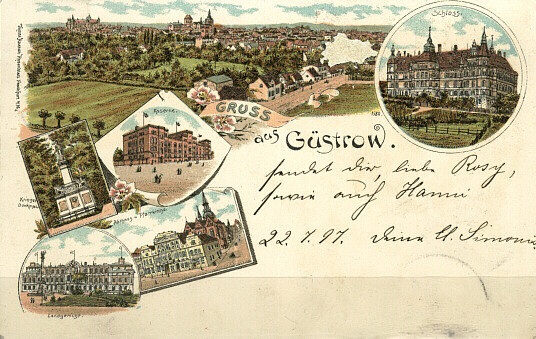 Schloss.
GRUSS
aus Güstrow.
Kaserne.
Krieger
Denkmal
Landgericht.
sendet dir, liebe Rosy,
sowie auch Hanni
22.7.97. deine U. Simonis